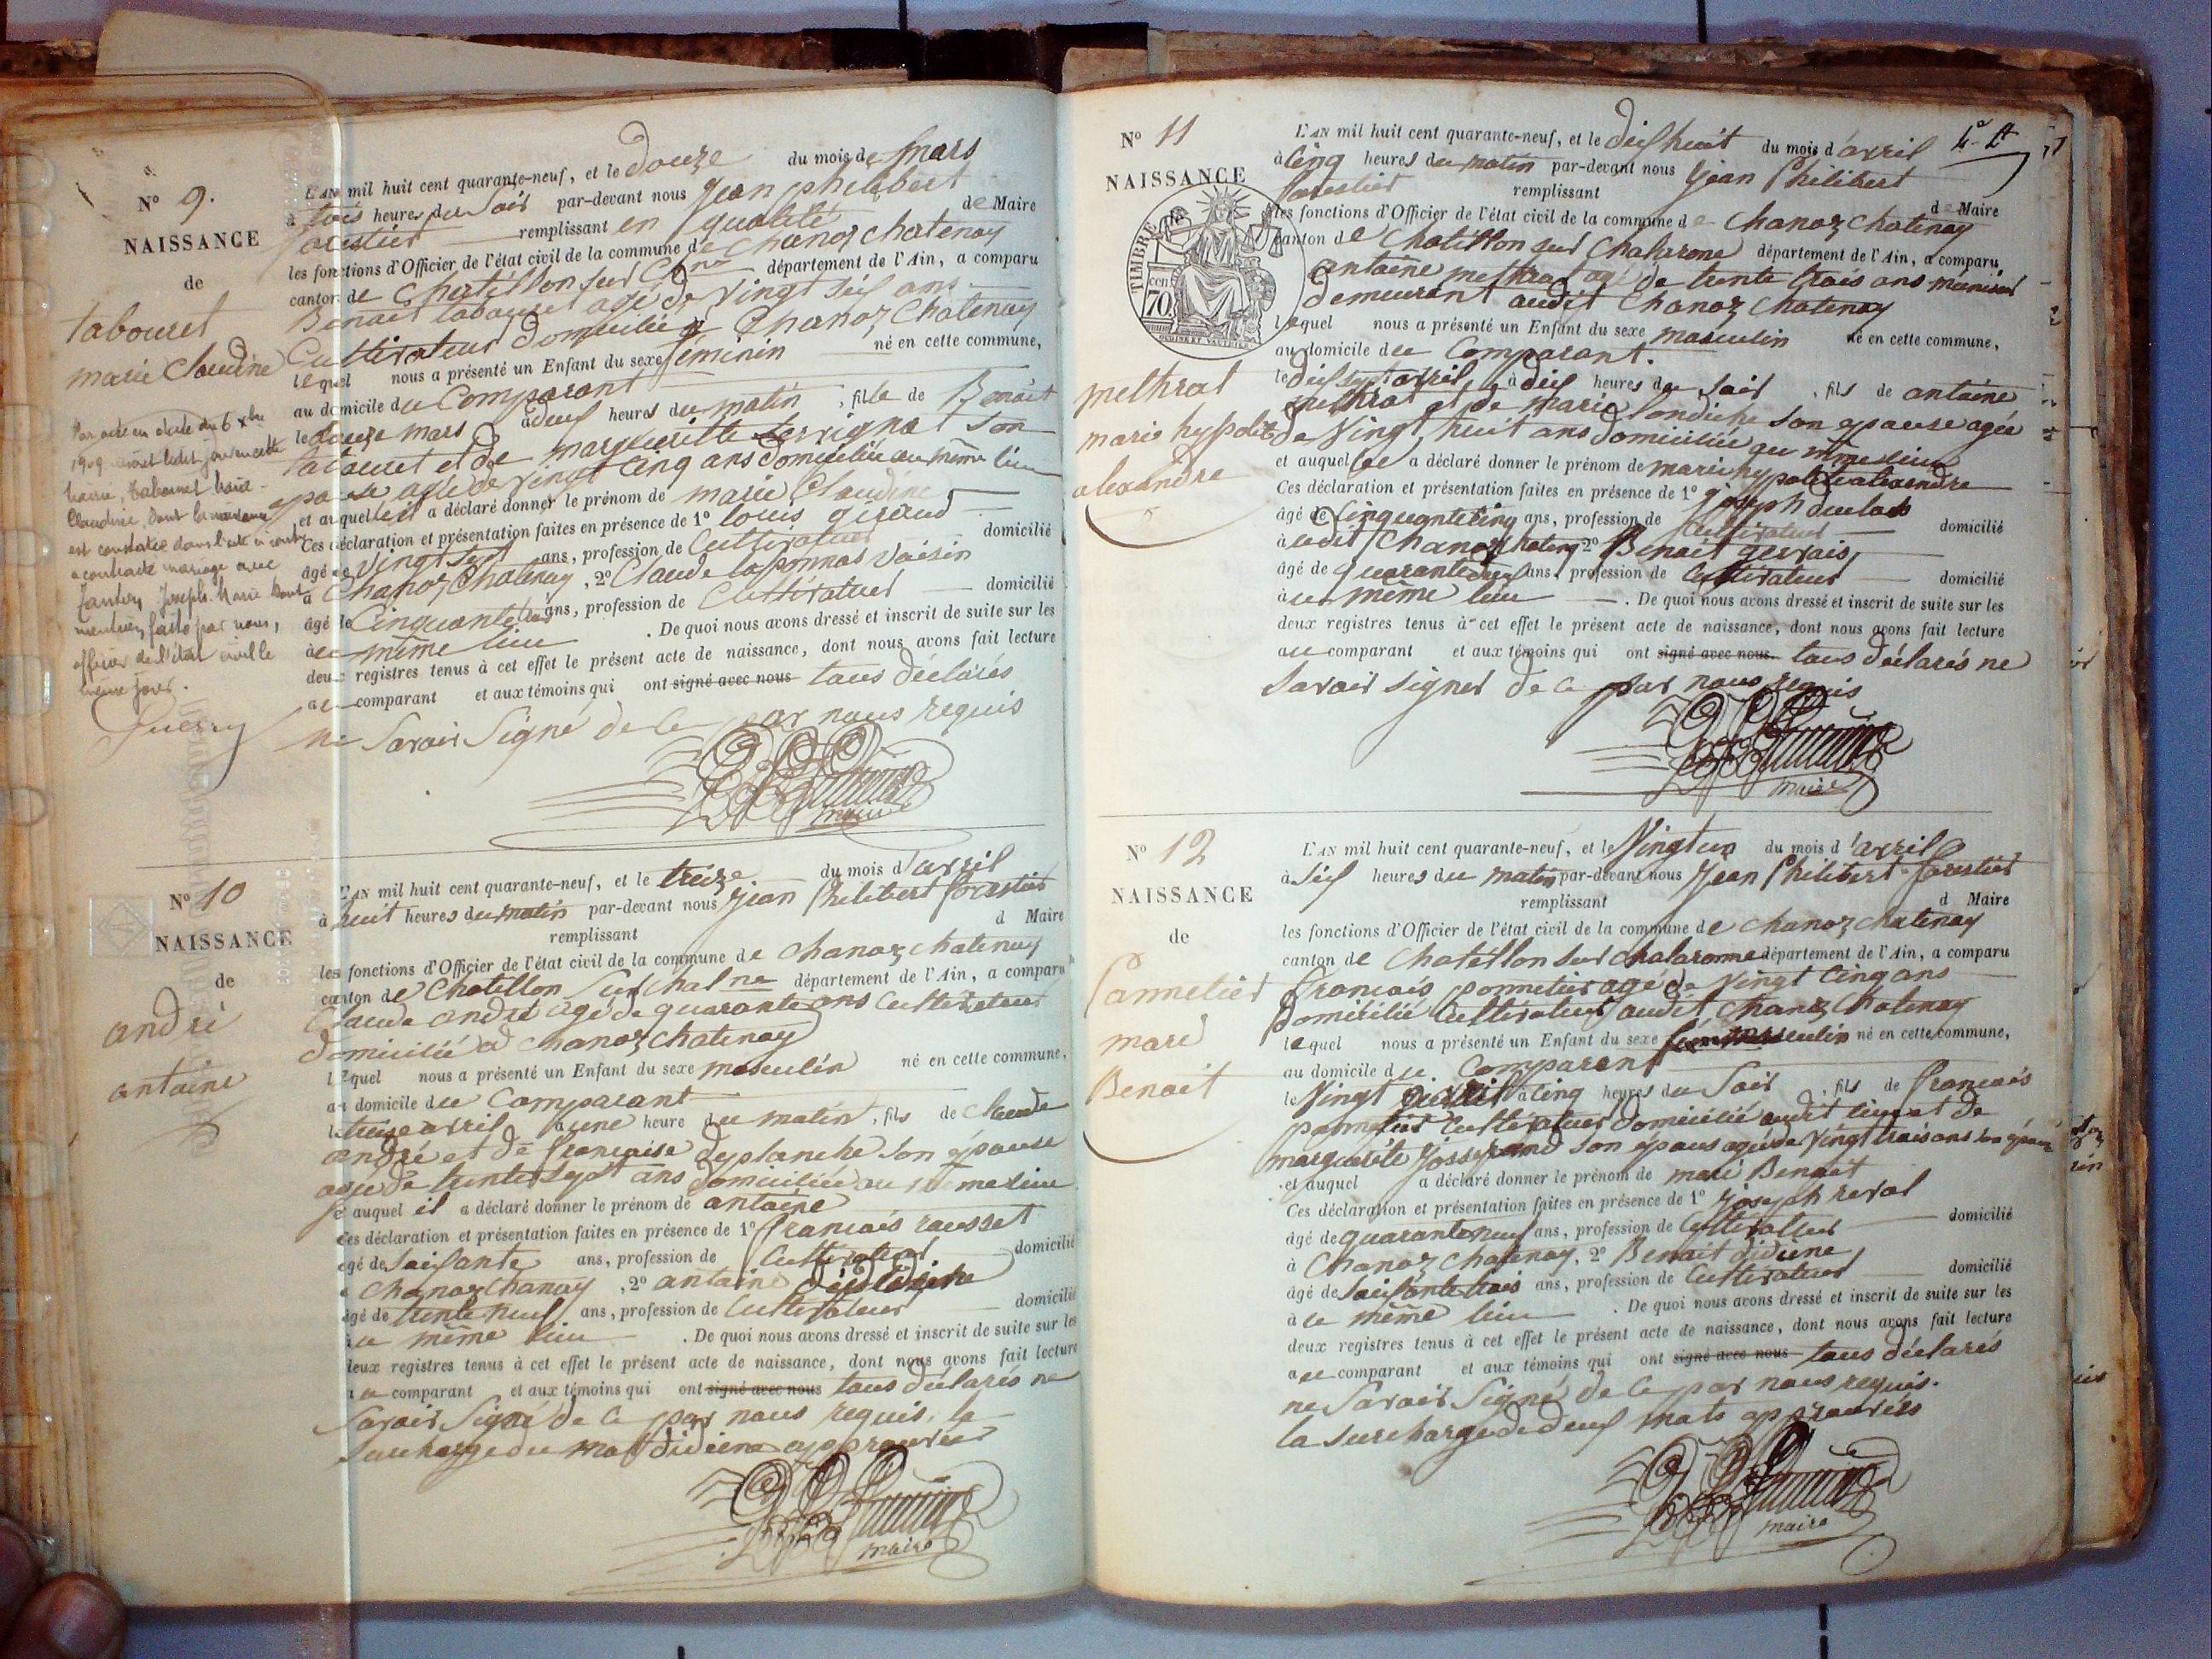 N° 9.
NAISSANCE
de
tabouret
marie Claudine
Par acte en date du 6 Xbre
1909
Claudine, dont la naissance
est constatée dans l'acte ci contre
a contracté mariage avec
Joseph Marie dont
mention faite par nous,
officier de l'état civil le
même jour.
L'AN mil huit cent quarante-neuf, et le douze du mois de mars
à trois heures du soir par-devant nous Jean philibert
forestier remplissant en qualité de Maire
les fonctions d'Officier de l'état civil de la commune de Chanoz chatenay
canton de Chatillon sur Chne département de l'Ain, a comparu
Benoit tabouret agé de vingt six ans
Cultivateur domicilié a Chanoz Chatenay
lequel nous a présenté un Enfant du sexe féminin né en cette commune,
au domicile du Comparant
le douze mars à deux heures du matin, fille de Benoit
tabouret et de margueritte son
epouse agée de vingt cinq ans domiciliée au même lieu
et auquel il a déclaré donner le prénom de marie Claudine
Ces déclaration et présentation faites en présence de 1° louis giraud
âgé de vingt sept ans, profession de Cultivateur domicilié
à Chanoz Chatenay, 2° Claude laponnas voisin
âgé de Cinquante ans, profession de Cultivateur domicilié
à ce même lieu. De quoi nous avons dressé et inscrit de suite sur les
deux registres tenus à cet effet le présent acte de naissance, dont nous avons fait lecture
au comparant et aux témoins qui ont signé avec nous tous déclarés
ne Savoir Signé de ce par nous requis
maire
N° 10
NAISSANCE
de
andré
antoine
L'AN mil huit cent quarante-neuf, et le treize du mois d'avril
à huit heures du matin par-devant nous Jean Philibert forestier
remplissant d Maire
les fonctions d'Officier de l'état civil de la commune de Chanoz chatenay
canton de Chatillon Sur Chalne département de l'Ain, a comparu
Claude andré agé de quarante ans Cultivateur
domicilié a Chanoz chatenay
lequel nous a présenté un Enfant du sexe masculin né en cette commune,
au domicile du Comparant
le treize avril à une heure du matin, fils de Claude
andré et de françoise deplanche son épouse
agée de trente sept ans domiciliée au même lieu
et auquel il a déclaré donner le prénom de antoine
Ces déclaration et présentation faites en présence de 1° francois rousset
âgé de soixante ans, profession de Cultivateur domicilié
à Chanoz Chanay, 2° antoine
âgé de trente neuf ans, profession de Cultivateur domicilié
à ce même lieu. De quoi nous avons dressé et inscrit de suite sur les
deux registres tenus à cet effet le présent acte de naissance, dont nous avons fait lecture
au comparant et aux témoins qui ont signé avec nous tous déclarés ne
Savoir Signé de ce par nous requis. la
surcharge du mot didiene approuvée
maire
N° 11
NAISSANCE
TIMBRE
70
methrat
marie hypolite
alexandre
L'AN mil huit cent quarante-neuf, et le dix huit du mois d'avril
à cinq heures du matin par-devant nous Jean Philibert
forestier remplissant de Maire
les fonctions d'Officier de l'état civil de la commune de Chanoz Chatenay
canton de Chatillon sur Chalarone département de l'Ain, a comparu
antoine methrat agé de trente trois ans
demeurant audit Chanoz Chatenay
lequel nous a présenté un Enfant du sexe masculin né en cette commune,
au domicile du Comparant.
le dix sept avril, à dix heures du soir, fils de antoine
methrat et de marie son epouse agée
de Vingt huit ans domiciliée au même lieu
et auquel a déclaré donner le prénom de marie hypolite alexandre
Ces déclaration et présentation faites en présence de 1° joseph
âgé de Cinquante cinq ans, profession de Cultivateur domicilié
à udit Chanoz 2° Benoit gervais,
âgé de quarante ans, profession de Cultivateur domicilié
à ce même lieu. De quoi nous avons dressé et inscrit de suite sur les
deux registres tenus à cet effet le présent acte de naissance, dont nous avons fait lecture
au comparant et aux témoins qui ont signé avec nous tous déclarés ne
savoir signer de ce par nous requis
maire
N° 12
NAISSANCE
de
Pannetier
marie
Benoit
L'AN mil huit cent quarante-neuf, et le Vingt un du mois d'avril
à six heures du matin par-devant nous Jean Philibert forestier
remplissant d Maire
les fonctions d'Officier de l'état civil de la commune de chanoz chatenay
canton de Chatillon sur Chalaronne département de l'Ain, a comparu
francois pannetier agé de Vingt Cinq ans
domicilié Cultivateur audit Chanoz Chatenay
lequel nous a présenté un Enfant du sexe masculin né en cette commune,
au domicile du Comparant
le Vingt avril à cinq heures du Soir, fils de francois
pannetier Cultivateur domicilié audit lieu et de
marguerite Josserand son epouse agée de Vingt trois ans
et auquel a déclaré donner le prénom de marie Benoit
Ces déclaration et présentation faites en présence de 1° joseph reval
âgé de quarante neuf ans, profession de Cultivateur domicilié
à Chanoz Chatenay, 2° Benoit didiene,
âgé de soixante trois ans, profession de Cultivateur domicilié
à ce même lieu. De quoi nous avons dressé et inscrit de suite sur les
deux registres tenus à cet effet le présent acte de naissance, dont nous avons fait lecture
au comparant et aux témoins qui ont signé avec nous tous déclarés
ne Savoir Signé de ce par nous requis.
la surcharge de deux mots approuvés
maire